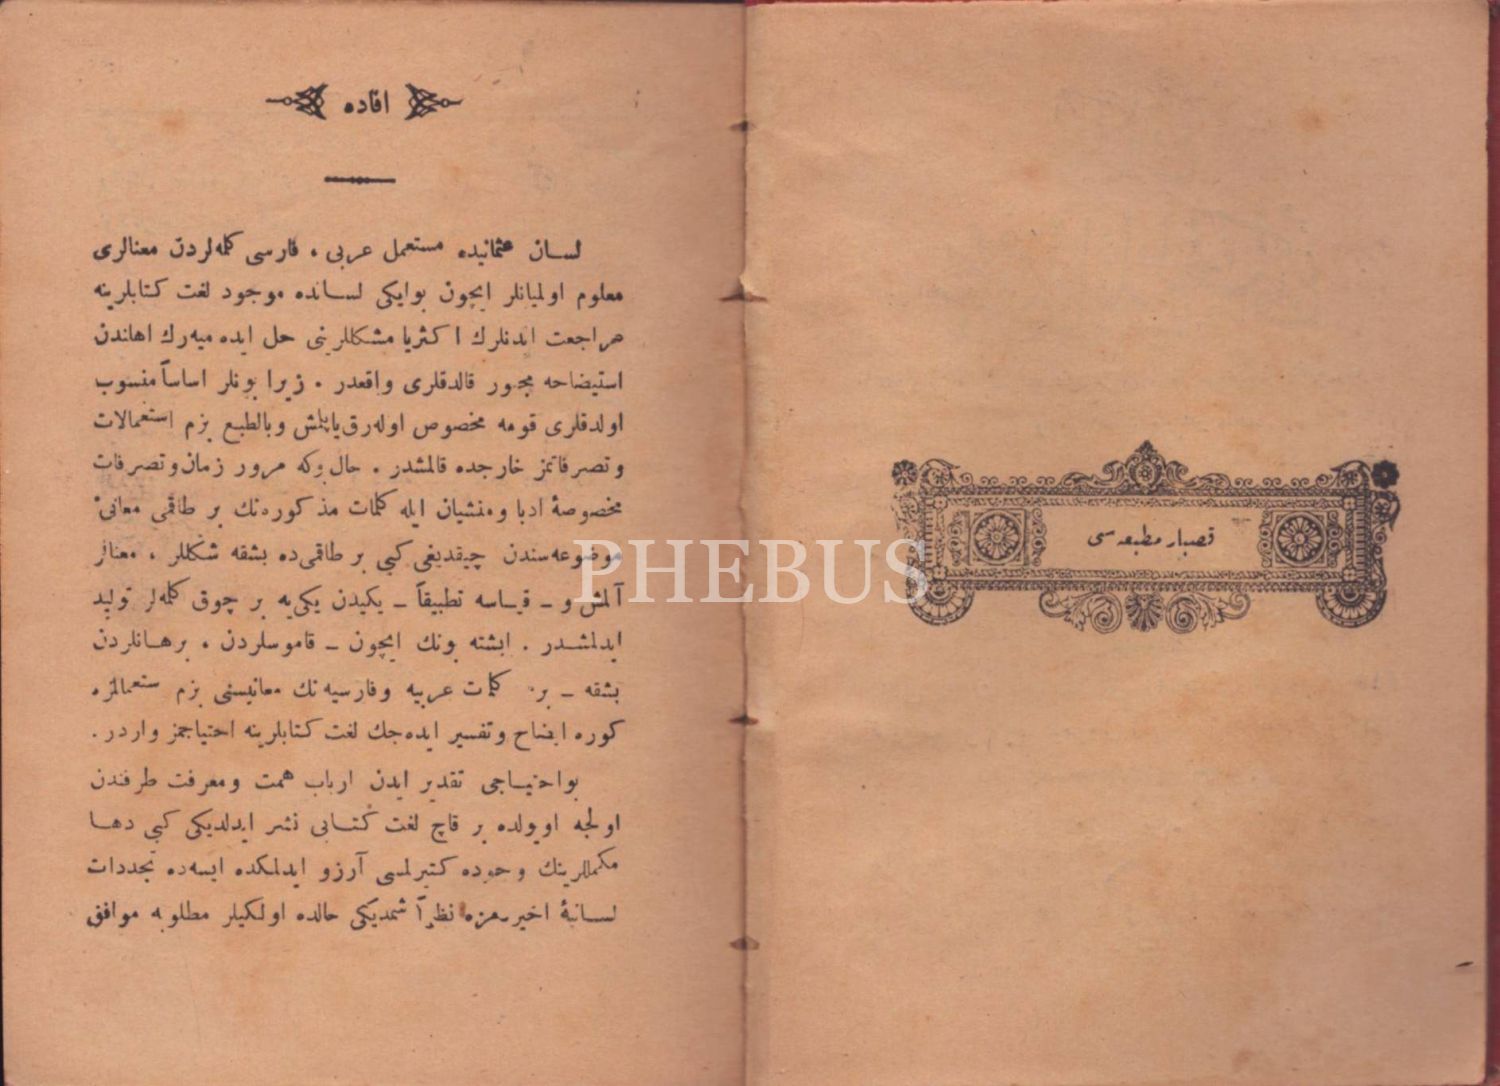 قصبار مطبعه سی
افاده
لسان عثمانیده مستعمل عربی ، فارسی کلمه‌لردن معنالری
معلوم اولمیانلر ایچون بوایکی لسانده موجود لغت کتابلرینه
مراجعت ایدنلرك اکثریا مشکللرینی حل ایده میه‌رك اهاندن
استیضاحه مجبور قالدقلری واقعدر . زیرا بونلر اساساً منسوب
اولدقلری قومه مخصوص اوله‌رق یاپلمش وبالطبع بزم استعمالات
وتصرفاتمز خارجده قالمشدر . حال بوکه مرور زمان وتصرفات
مخصوصهٔ ادبا ومنشیان ایله کلمات مذکوره‌نك بر طاقمی معانیٔ
موضوعه‌سندن چیقدیغی کبی بر طاقمی‌ده بشقه شکللر ، معنالر
آلمش و ـ قیاسه تطبیقاً ـ یکیدن یکی‌یه بر چوق کلمه‌لر تولید
ایدلمشدر . ایشته بونك ایچون ـ قاموسلردن ، برهانلردن
بشقه ـ بر کلمات عربیه وفارسیه‌نك معانیسنی بزم ستعمالمزه
کوره ایضاح وتفسیر ایده‌جك لغت کتابلرینه احتیاجمز واردر .
بواحتیاجی تقدیر ایدن ارباب همت ومعرفت طرفندن
اولجه اویولده بر قاچ لغت کتابی نشر ایدلدیکی کبی دها
مکمللرینك وجوده کتیرلمسی آرزو ایدلمکده ایسه‌ده تجددات
لسانیهٔ اخیره‌مزه نظراً شمدیکی حالده اولکیلر مطلوبه موافق
PHEBUS